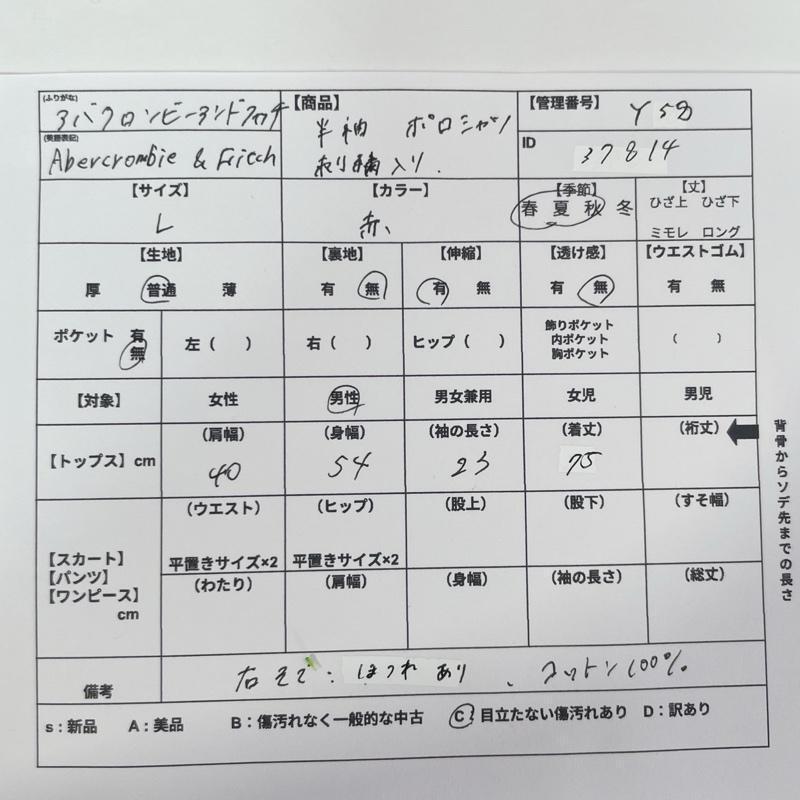 (ふりがな)
アバクロンビーアンドフィッチ
(英語表記)
Abercrombie & Fitch
【商品】
半袖 ポロシャツ
刺繍入り.
【管理番号】 Y58
ID 37814
【サイズ】
L
【カラー】
赤、
【季節】
春 夏 秋 冬
【丈】
ひざ上 ひざ下
ミモレ ロング
【生地】
厚 普通 薄
【裏地】
有 無
【伸縮】
有 無
【透け感】
有 無
【ウエストゴム】
有 無
ポケット 有
無
左 ( )
右 ( )
ヒップ ( )
飾りポケット
内ポケット
胸ポケット
( )
【対象】 女性 男性 男女兼用 女児 男児
【トップス】cm
(肩幅)
40
(身幅)
54
(袖の長さ)
23
(着丈)
75
(裄丈)
背骨からソデ先までの長さ
【スカート】
【パンツ】
【ワンピース】
cm
(ウエスト)
平置きサイズ×2
(ヒップ)
平置きサイズ×2
(股上)
(股下)
(すそ幅)
(わたり)
(肩幅)
(身幅)
(袖の長さ)
(総丈)
備考
右そで:ほつれあり、コットン100%
s:新品 A:美品 B:傷汚れなく一般的な中古 C:目立たない傷汚れあり D:訳あり